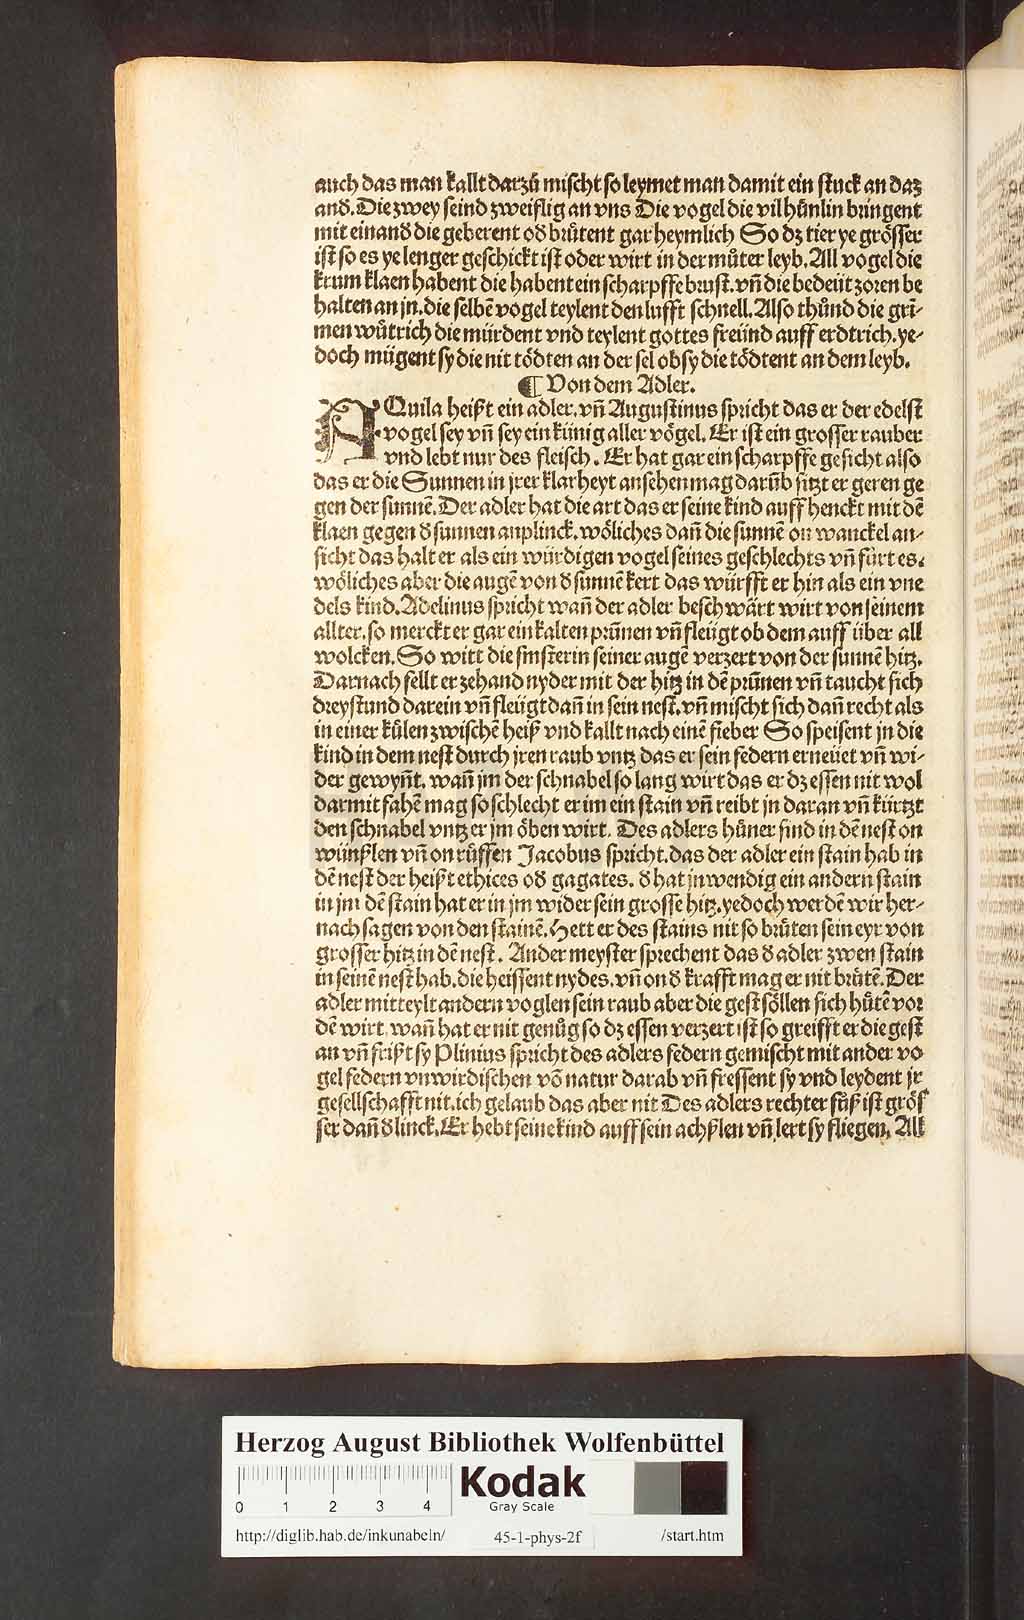 auch das man kallt darzů mischt so leymet man damit ein stuck an daz
and̕. Die zwey seind zweiflig an vns Die vogel die vil hůnlin bringent
mit einand̕ die geberent od̕ brůtent gar heymlich So dz tier ye grösser
ist so es ye lenger geschickt ist oder wirt in der můter leyb. All vogel die
krum klaen habent die habent ein scharpffe brust. vñ die bedeüt zoren be
halten an jn. die selbē vogel teylent den lufft schnell. Also thůnd die gri-
men wůtrich die mürdent vnd teylent gottes freünd auff erdtrich. ye-
doch mügent sy die nit tödten an der sel ob sy die tödtent an dem leyb.
¶ Von dem Adler.
AQuila heißt ein adler. vñ Augustinus spricht das er der edelst
vogel sey vñ sey ein künig aller vögel. Er ist ein grosser rauber
vnd lebt nur des fleisch. Er hat gar ein scharpffe gesicht also
das er die Sunnen in jrer klarheyt ansehen mag darūb sitzt er geren ge
gen der sunnē. Der adler hat die art das er seine kind auff henckt mit dē
klaen gegen d̕ sunnen anplinck. wöliches dañ die sunnē on wanckel an-
sicht das halt er als ein würdigen vogel seines geschlechts vñ fürt es.
wöliches aber die augē von d̕ sunnē kert das würfft er hin als ein vne
dels kind. Adelinus spricht wañ der adler beschwärt wirt von seinem
allter. so merckt er gar ein kalten prūnen vñ fleügt ob dem auff über all
wolcken. So wirt die finster in seiner augē verzert von der sunnē hitz.
Darnach fellt er zehand nyder mit der hitz in dē prūnen vñ taucht sich
dreystund darein vñ fleügt dañ in sein nest. vñ mischt sich dañ recht als
in einer kůlen zwischē heiß vnd kallt nach einē fieber So speisent jn die
kind in dem nest durch jren raub vntz das er sein federn erneüet vñ wi-
der gewyñt. wañ jm der schnabel so lang wirt das er dz essen nit wol
darmit fahē mag so schlecht er im ein stain vñ reibt jn daran vñ kürtzt
den schnabel vntz er jm öben wirt. Des adlers hůner sind in dē nest on
wünßlen vñ on růffen Jacobus spricht. das der adler ein stain hab in
dē nest der heißt ethices od̕ gagates. d̕ hat jnwendig ein andern stain
in jm dē stain hat er in jm wider sein grosse hitz. yedoch werdē wir her-
nach sagen von den stainē. Hett er des stains nit so brůten sein eyr von
grosser hitz in dē nest. Ander meyster sprechent das d̕ adler zwen stain
in seinē nest hab. die heissent nydes. vñ on d̕ krafft mag er nit brůtē. Der
adler mitteylt andern voglen sein raub aber die gest söllen sich hůtē vor
dē wirt. wañ hat er nit genůg so dz essen verzert ist so greifft er die gest
an vñ frißt sy Plinius spricht des adlers federn gemischt mit ander vo
gel federn vnwirdischen vō natur darab vñ fressent sy vnd leydent jr
gesellschafft nit. ich gelaub das aber nit Des adlers rechter fůß ist grös
ser dañ d̕ linck. Er hebt seine kind auff sein achßlen vñ lert sy fliegen. All
Herzog August Bibliothek Wolfenbüttel
0 1 2 3 4
Kodak
Gray Scale
http://diglib.hab.de/inkunabeln/ 45-1-phys-2f /start.htm